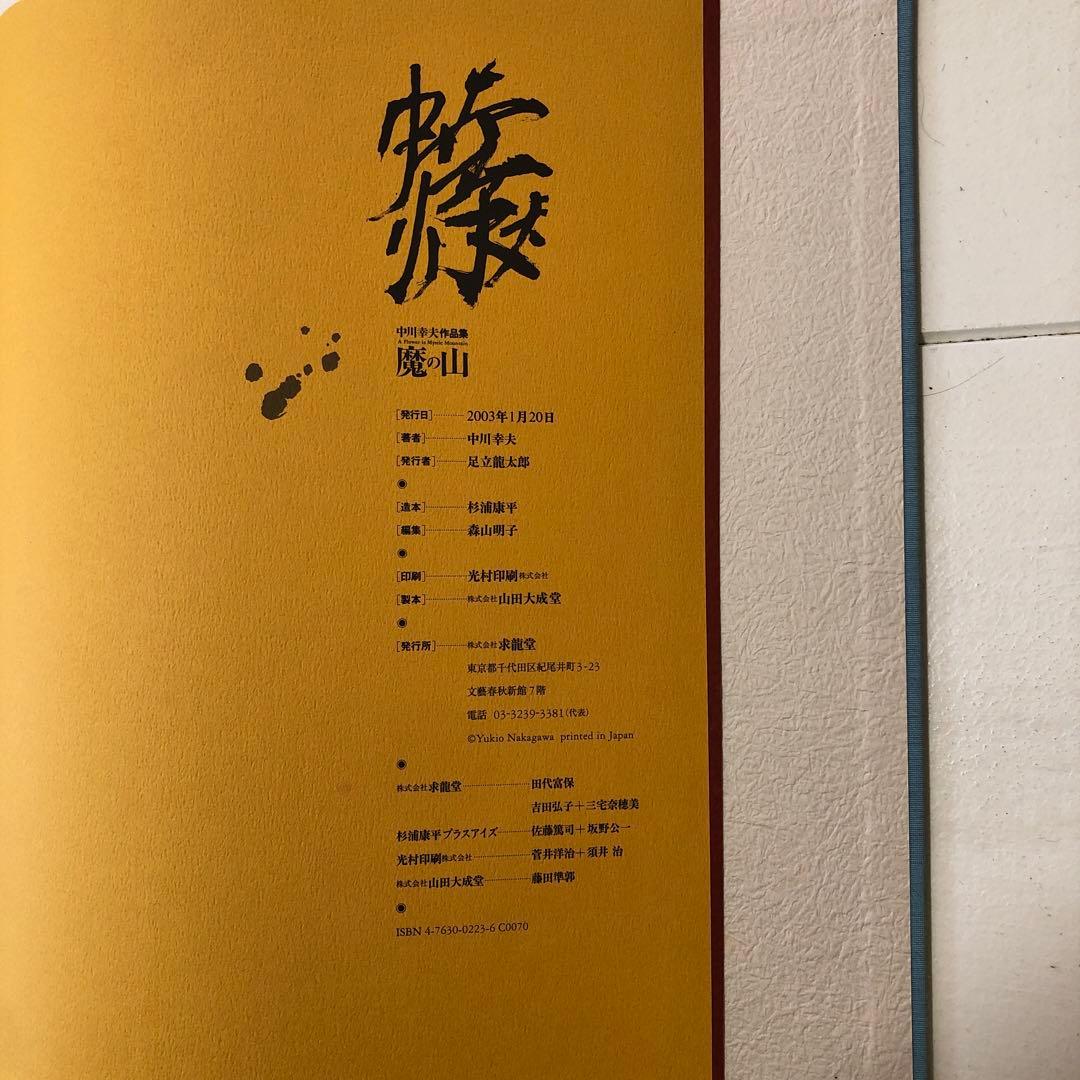 中川幸夫作品集
A Flower is Mystic Mountain
魔の山
[発行日]…………2003年1月20日
[著者]……………中川幸夫
[発行者]…………足立龍太郎
◉
[造本]……………杉浦康平
[編集]……………森山明子
◉
[印刷]……………光村印刷株式会社
[製本]……………株式会社山田大成堂
◉
[発行所]…………株式会社求龍堂
東京都千代田区紀尾井町3-23
文藝春秋新館7階
電話 03-3239-3381(代表)
©Yukio Nakagawa printed in Japan
◉
株式会社求龍堂……………………田代富保
吉田弘子+三宅奈穂美
杉浦康平プラスアイズ…………佐藤篤司+坂野公一
光村印刷株式会社…………………菅井洋治+須井 治
株式会社山田大成堂………………藤田準郭
◉
ISBN 4-7630-0223-6 C0070